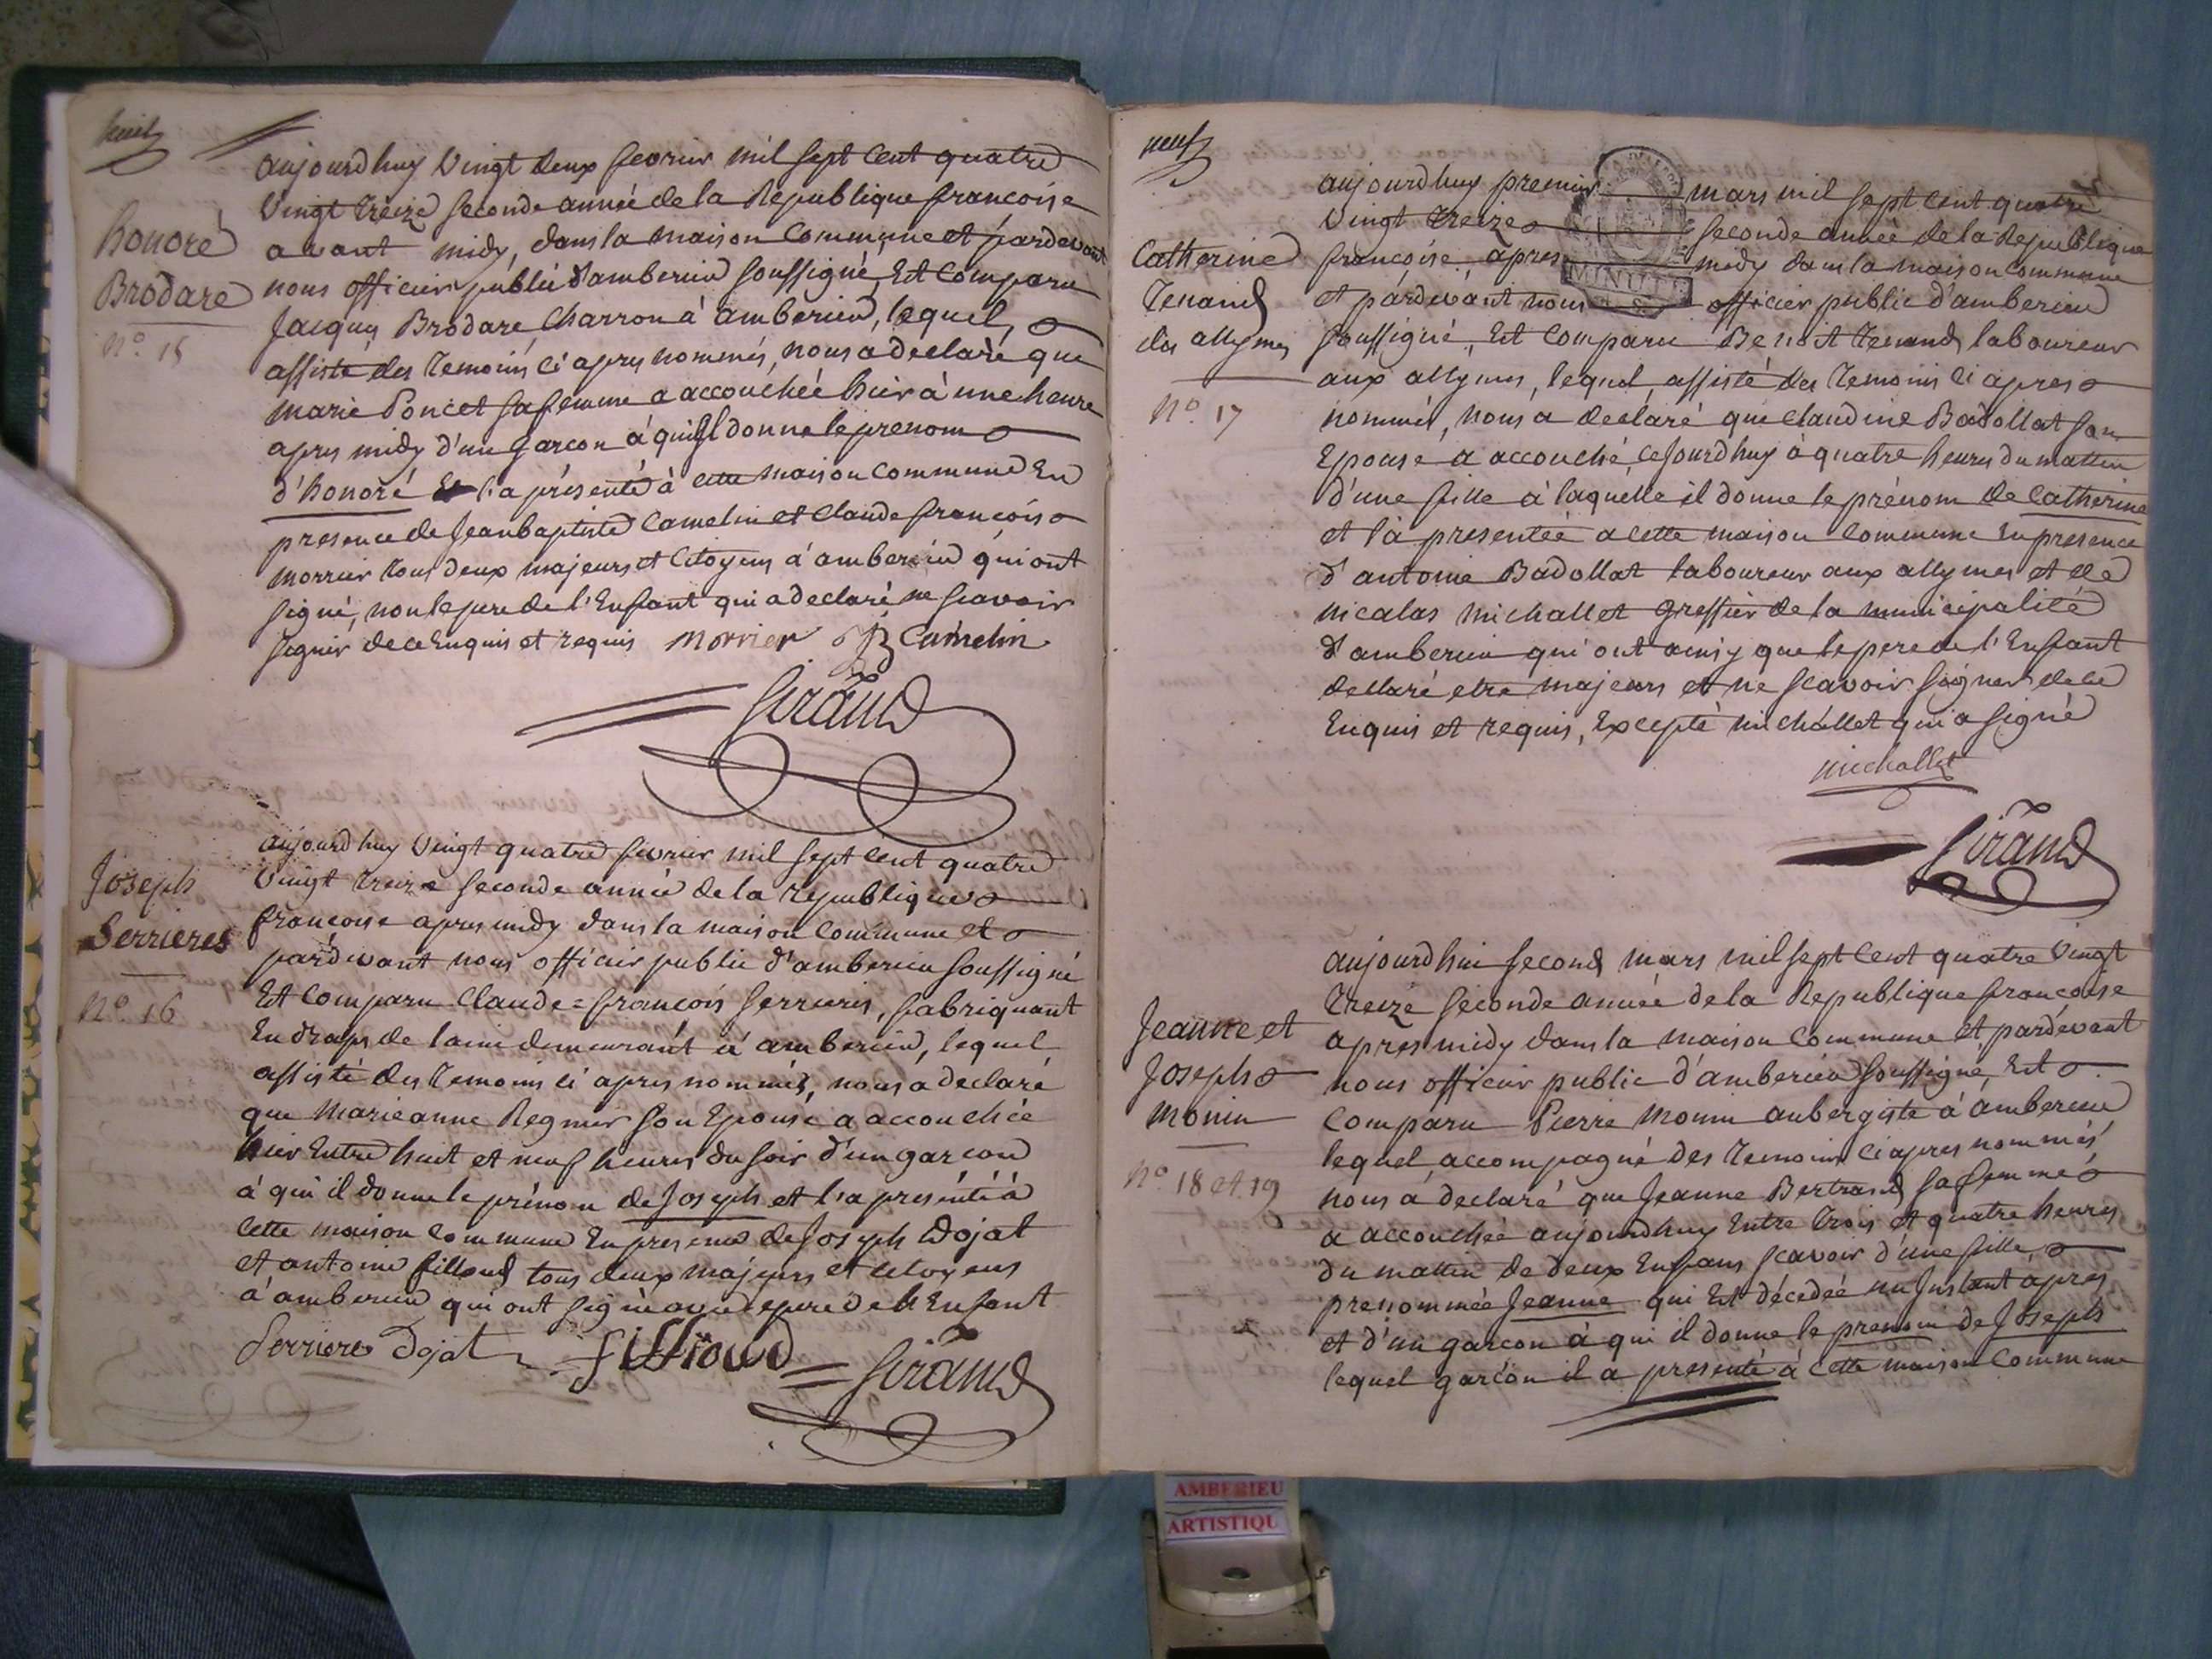 huit
aujourdhuy vingt deux fevrier mil sept cent quatre
vingt treize seconde année de la Republique francoise
avant midy, dans la maison Commune et pardevant
nous officier public d'amberieu soussigné, Est Comparu
Jacques Brodare, Charron à amberieu, lequel,
assisté des temoins ci apres nommés, nous a declaré que
marie Poncet sa femme a accouchée hier à une heure
apres midy d'un garcon à qui Il donne le prenom
d'honoré l'a présenté à cette maison Commune En
presence de Jean baptiste Camelin et Claude francois
morrier tous deux majeurs et Citoyens à amberieu qui ont
signé, non le pere de l'Enfant qui a declaré ne scavoir
signer de ce Enquis et requis Morrier Camelin
Girand
honoré
Brodare
n.º 15
aujourdhuy vingt quatre fevrier mil sept cent quatre
vingt treize seconde année de la republique
francoise apres midy dans la maison Commune et
pardevant nous officier public d'amberieu soussigné
Est Comparu Claude=francois serrieres, fabriquant
En draps de laine demeurant à amberieu, lequel
assisté des temoins ci apres nommés, nous a declaré
que marie anne Regnier son Epouse a accouchée
hier Entre huit et neuf heures du soir d'un garcon
à qui il donne le prénom de Joseph et l'a presenté à
cette maison Commune En presence de Joseph Dojat
et antoine filloud tous deux majeurs et Citoyens
à amberieu qui ont signé avec le pere de l'Enfant
Serrieres Dojat filloud Girand
Joseph
Serrieres
n.º 16
neuf
aujourdhuy premier mars mil sept cent quatre
vingt treize seconde année de la Republique
francoise, apres midy dans la maison Commune
et pardevant nous officier public d'amberieu
MINUTE
soussigné, Est Comparu Benoit tenand laboureur
aux allymes, lequel assisté des temoins ci apres
nommés, nous a declaré que Claudine Badollat son
Epouse a accouché, cejourdhuy à quatre heures du matin
d'une fille à laquelle il donne le prénom de Catherine
et l'a presentée a cette maison Commune En presence
d'antoine Badollat laboureur aux allymes et de
nicalas michallet greffier de la municipalité
d'amberieu qui ont ainsy que le pere de l'Enfant
declaré etre majeurs et ne scavoir signer de ce
Enquis et requis, Excepté michallet qui a signé
michallet
Girand
Catherine
Tenand
des allymes
n.º 17
aujourdhui second mars mil sept cent quatre vingt
treize seconde année de la Republique francoise
apres midy dans la maison Commune et pardevant
nous officier public d'amberieu soussigné, Est
Comparu Pierre monin aubergiste à amberieu
lequel accompagné des temoins ci apres nommés
nous a declaré que Jeanne Bertrand sa femme
a accouchée aujourdhuy Entre trois et quatre heures
du matin de deux Enfans scavoir d'une fille,
prenommée Jeanne qui Est décedée un Instant apres
et d'un garcon à qui il donne le prenom de Joseph
lequel garcon il a presenté à cette maison Commune
Jeanne et
Joseph
monin
n.º 18 et 19
AMBERIEU
ARTISTIQU